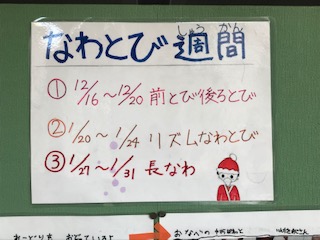 なわとび週間
しゅう かん
① 12/16～12/20 前とび後ろとび
② 1/20～1/24 リズムなわとび
③ 1/27～1/31 長なわ